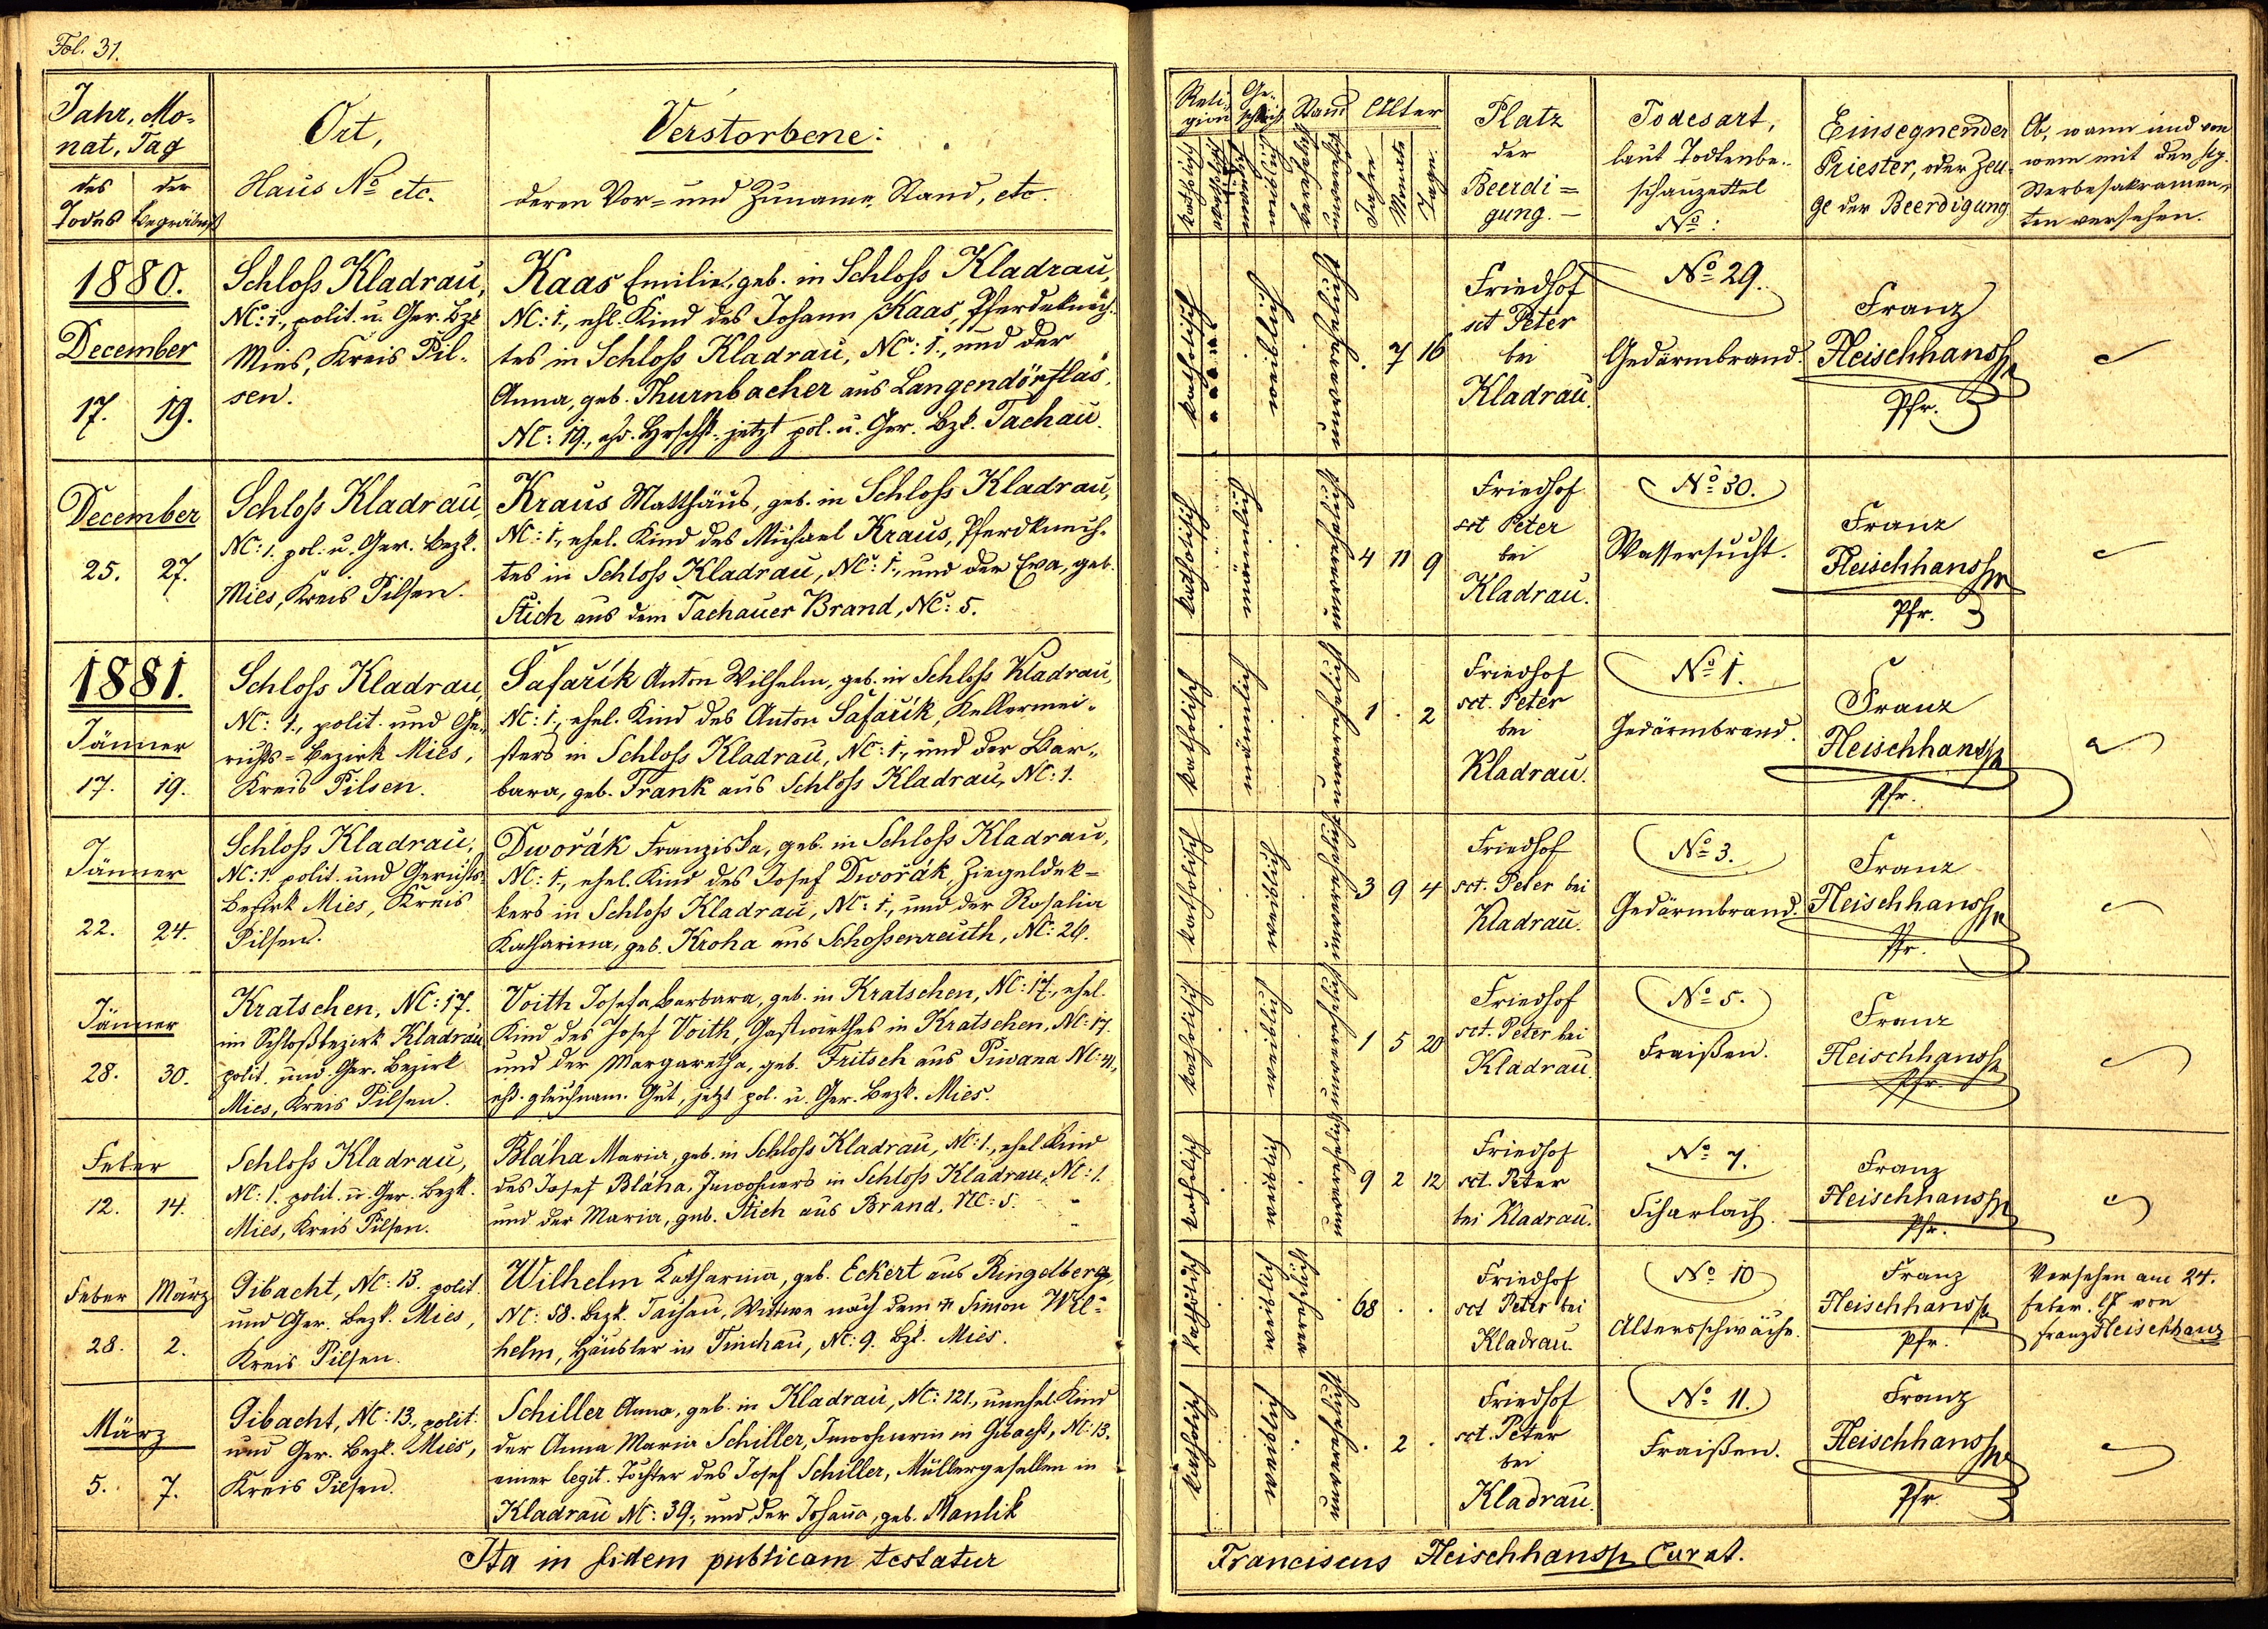 Fol. 31.
Jahr, Mo-
nat, Tag
des
Todes
der
Begräbniß
Ort,
Haus No etc.
Verstorbene:
deren Vor- und Zuname, Stand, etc.
1880.
December
17. 19.
Schloß Kladrau,
NC: 1., polit. u. Ger. Bzk
Mies, Kreis Pil-
sen.
Kaas Emilie, geb. in Schloß Kladrau,
NC: 1., ehl. Kind des Johann Kaas, Pferdeknech-
tes in Schloß Kladrau, NC: 1., und der
Anna, geb. Thurnbacher aus Langendörflas,
NC: 19., ehd. Hrschft. jetzt pol. u. Ger. Bzk. Tachau.
December
25. 27.
Schloß Kladrau,
NC: 1. pol. u. Ger. Bezk.
Mies, Kreis Pilsen.
Kraus Matthäus, geb. in Schloß Kladrau,
NC: 1., ehel. Kind des Michael Kraus, Pferdknech-
tes in Schloß Kladrau, NC: 1., und der Eva, geb.
Stich aus dem Tachauer Brand, NC: 5.
1881.
Jänner
17. 19.
Schloß Kladrau
NC: 1., polit. und Ge-
richts-Bezirk Mies,
Kreis Pilsen.
Šafařík Anton Wilhelm, geb. in Schloß Kladrau,
NC: 1., ehel. Kind des Anton Šafařík, Kellermei-
sters in Schloß Kladrau, NC: 1., und der Bar-
bara, geb. Frank aus Schloß Kladrau, NC: 1.
Jänner
22. 24.
Schloß Kladrau,
NC: 1. polit. und Gerichts-
Bezirk Mies, Kreis
Pilsen.
Dwořák Franziska, geb. in Schloß Kladrau,
NC: 1., ehel. Kind des Josef Dwořák, Ziegeldek-
kers in Schloß Kladrau, NC: 1., und der Rosalia
Katharina, geb. Kroha aus Schossenreuth, NC: 26.
Jänner
28. 30.
Kratschen, NC: 17.
im Schloßbezirk Kladrau
polit. und Ger. Bezirk
Mies, Kreis Pilsen.
Voith Josefa Barbara, geb. in Kratschen, NC: 17., ehel.
Kind des Josef Voith, Gastwirthes in Kratschen, NC: 17.
und der Margaretha, geb. Fritsch aus Piwana NC: 41,
ehd. gleichnam. Gut, jetzt pol. u. Ger. Bezk. Mies.
Feber
12. 14.
Schloß Kladrau,
NC: 1. polit. u. Ger. Bezk.
Mies, Kreis Pilsen.
Bláha Maria, geb. in Schloß Kladrau, NC: 1., ehel. Kind
des Josef Bláha, Inwohners in Schloß Kladrau, NC: 1.
und der Maria, geb. Stich aus Brand, NC: 5.
Feber März
28. 2.
Gibacht, NC: 13. polit.
und Ger. Bezk. Mies,
Kreis Pilsen.
Wilhelm Katharina, geb. Eckert aus Ringelberg,
NC: 58. Bezk. Tachau, Wittwe nach dem Simon Wil-
helm, Häusler in Tinchau, NC: 9. Bzk. Mies.
März
5. 7.
Gibacht, NC: 13., polit.
und Ger. Bezk. Mies,
Kreis Pilsen.
Schiller Anna, geb. in Kladrau, NC: 121., unehel. Kind
der Anna Maria Schiller, Inwohnerin in Gibacht, NC: 13.
einer legit. Tochter des Josef Schiller, Müllergesellen in
Kladrau NC: 39., und der Johanna, geb. Manlik
Ita in fidem publicam testatur
Reli-
gion
Ge-
schlecht
Stand
Alter
katholisch
männlich
weiblich
verehelicht
unverehelicht
Jahre
Monate
Tage
Platz
der
Beerdi-
gung.
Todesart,
laut Todtenbe-
schauzettel
No:
Einsegnender
Priester, oder Zeu-
ge der Beerdigung
Ob, wann und von
wem mit den hlg.
Sterbesakramen-
ten versehen.
katholisch weiblich unverehelicht . 7 16
Friedhof
sct Peter
bei
Kladrau.
No 29.
Gedärmbrand.
Franz
Fleischhanß
Pfr.
katholisch männlich unverehelicht 4 11 9
Friedhof
sct Peter
bei
Kladrau.
No 30.
Wassersucht.
Franz
Fleischhanß
Pfr.
katholisch männlich unverehelicht 1 . 2
Friedhof
sct. Peter
bei
Kladrau.
No 1.
Gedärmbrand.
Franz
Fleischhanß
Pfr.
katholisch weiblich unverehelicht 3 9 4
Friedhof
sct. Peter bei
Kladrau.
No 3.
Gedärmbrand.
Franz
Fleischhanß
Pfr.
katholisch weiblich unverehelicht 1 5 20
Friedhof
sct. Peter bei
Kladrau.
No 5.
Fraißen.
Franz
Fleischhanß
Pfr.
katholisch weiblich unverehelicht 9 2 12
Friedhof
sct. Peter
bei Kladrau.
No 7.
Scharlach.
Franz
Fleischhanß
Pfr.
katholisch weiblich verehelicht 68 . .
Friedhof
sct Peter bei
Kladrau.
No 10
Altersschwäche.
Franz
Fleischhanß
Pfr.
Versehen am 24.
Feber. lJ von
Franz Fleischhanz
katholisch weiblich unverehelicht . 2 .
Friedhof
sct. Peter
bei
Kladrau.
No 11.
Fraißen.
Franz
Fleischhanß
Pfr.
Franciscus Fleischhanß Curat.